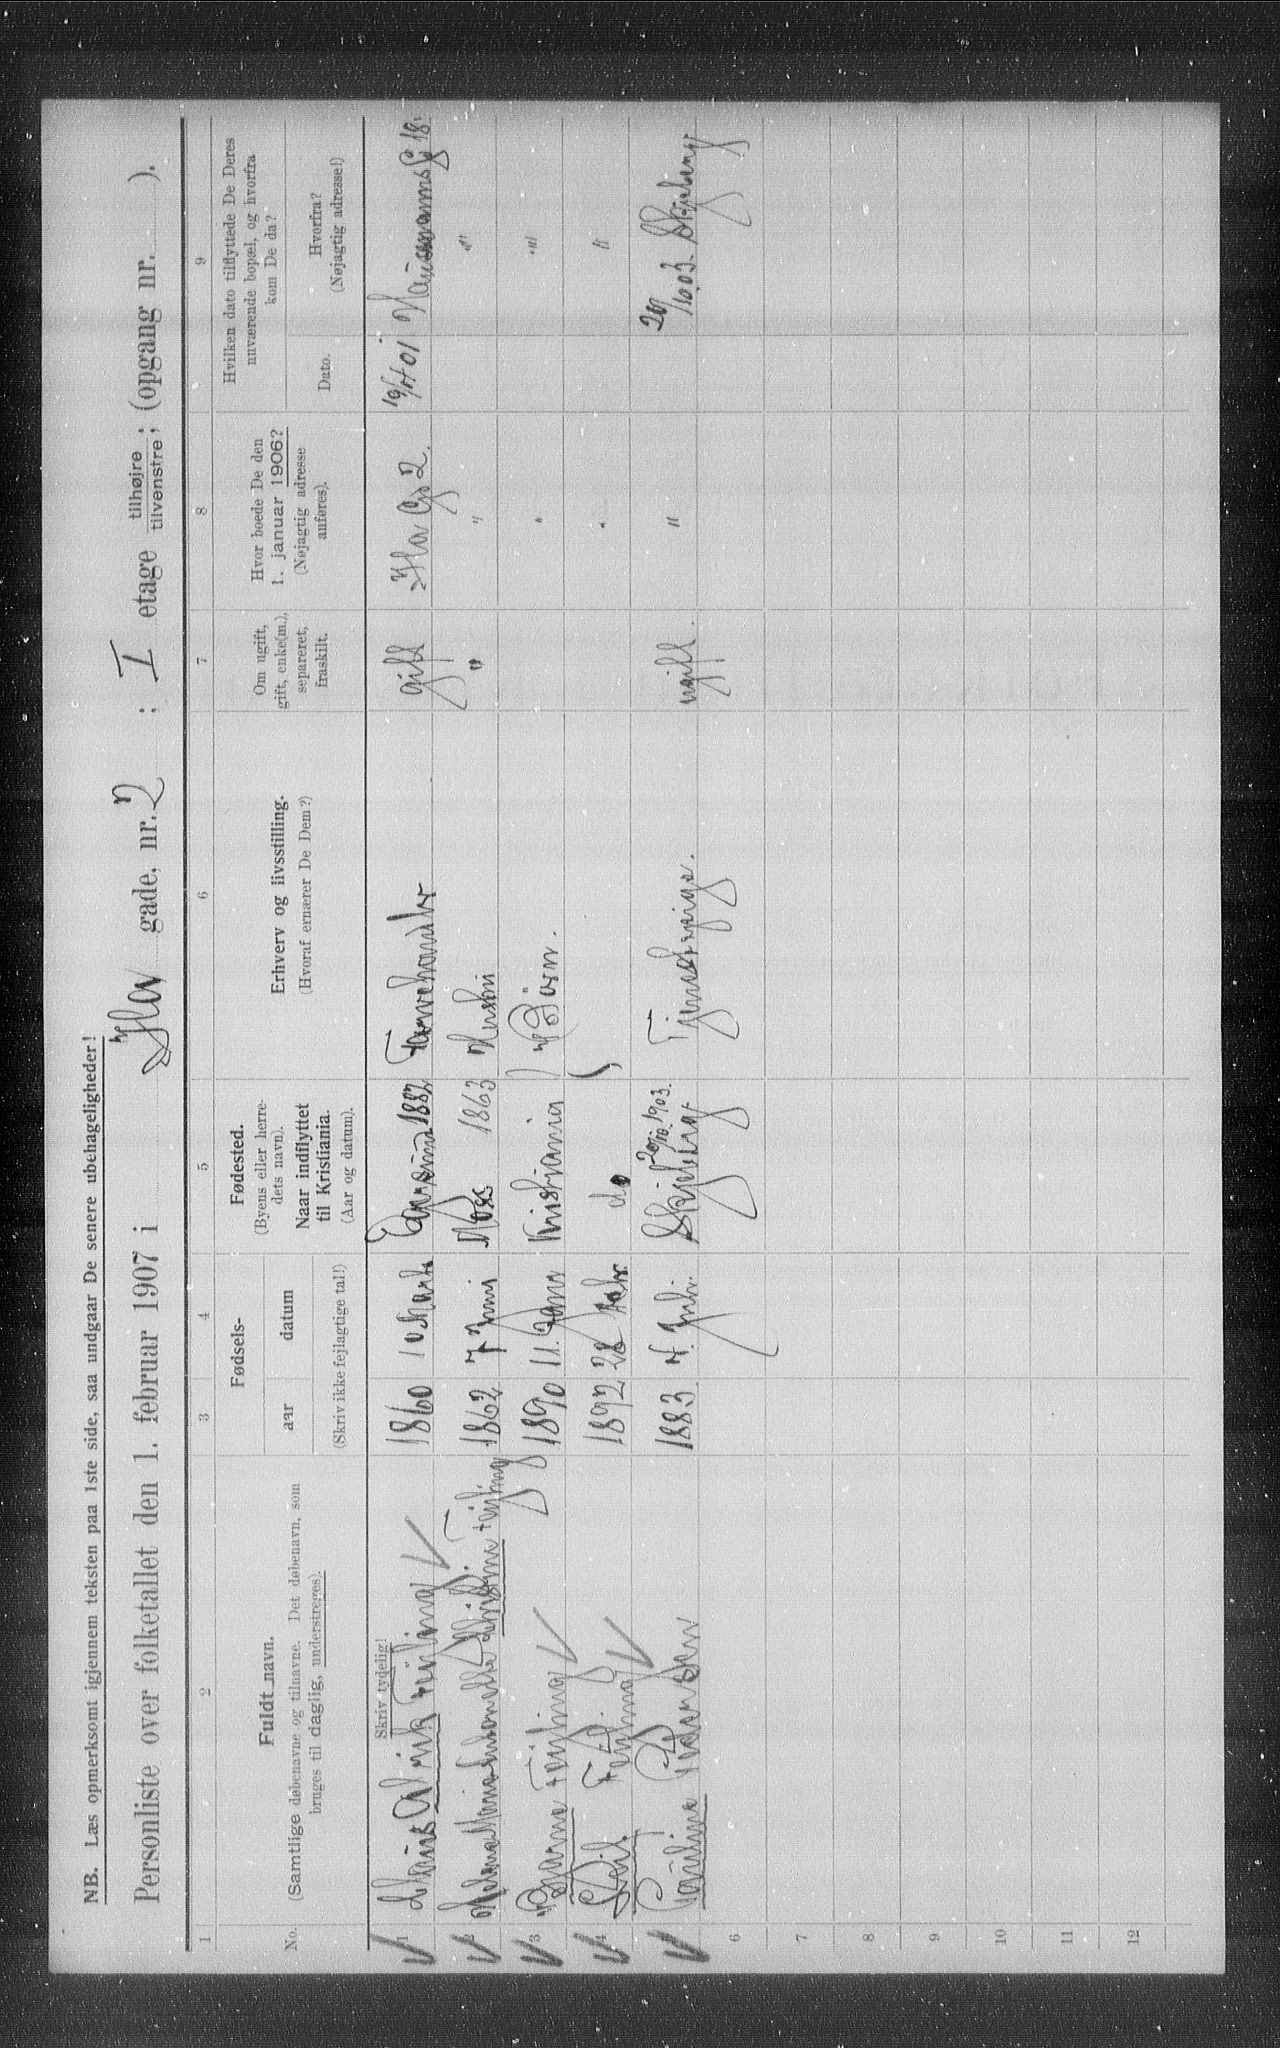 NB. Læs opmerksomt igjennem teksten paa 1ste side, saa undgaar De senere ubehageligheder!
Personliste over folketallet den 1. februar 1907 i Ila gade, nr. 2 ; I etage tilhøjre tilvenstre; (opgang nr. ).
1 2 3 4 5 6 7 8 9
No.
Fuldt navn.
(Samtlige døbenavne og tilnavne. Det døbenavn, som
bruges til daglig, understreges).
Fødsels-
aar datum
(Skriv ikke fejlagtige tal!)
Fødested.
(Byens eller herre-
dets navn).
Naar indflyttet
til Kristiania.
(Aar og datum).
Erhverv og livsstilling.
(Hvoraf ernærer De Dem?)
Om ugift,
gift, enke(m.),
separeret,
fraskilt.
Hvor boede De den
1. januar 1906?
(Nøjagtig adresse
anføres).
Hvilken dato tilflyttede De Deres
nuværende bopæl, og hvorfra
kom De da?
Dato.
Hvorfra?
(Nøjagtig adresse!)
Skriv tydelig!
1 1860 10 Marts 1882 Farvehandler gift Ila Gd 2. Hausmannsg 18.
2 Helene Marie 1862 7 Juni Moss 1863 Hustru " " "
3 Bjarne Feyling 1890 11. Janr Kristiania Børn. " "
4 Feyling 1892 28 Febr. do " "
5 Paulina Pedersen 1883 4. Juli. Skjeberg 20/10. 1903. Tjenestepige. ugift. " 20/10.03. Skjeberg
6
7
8
9
10
11
12